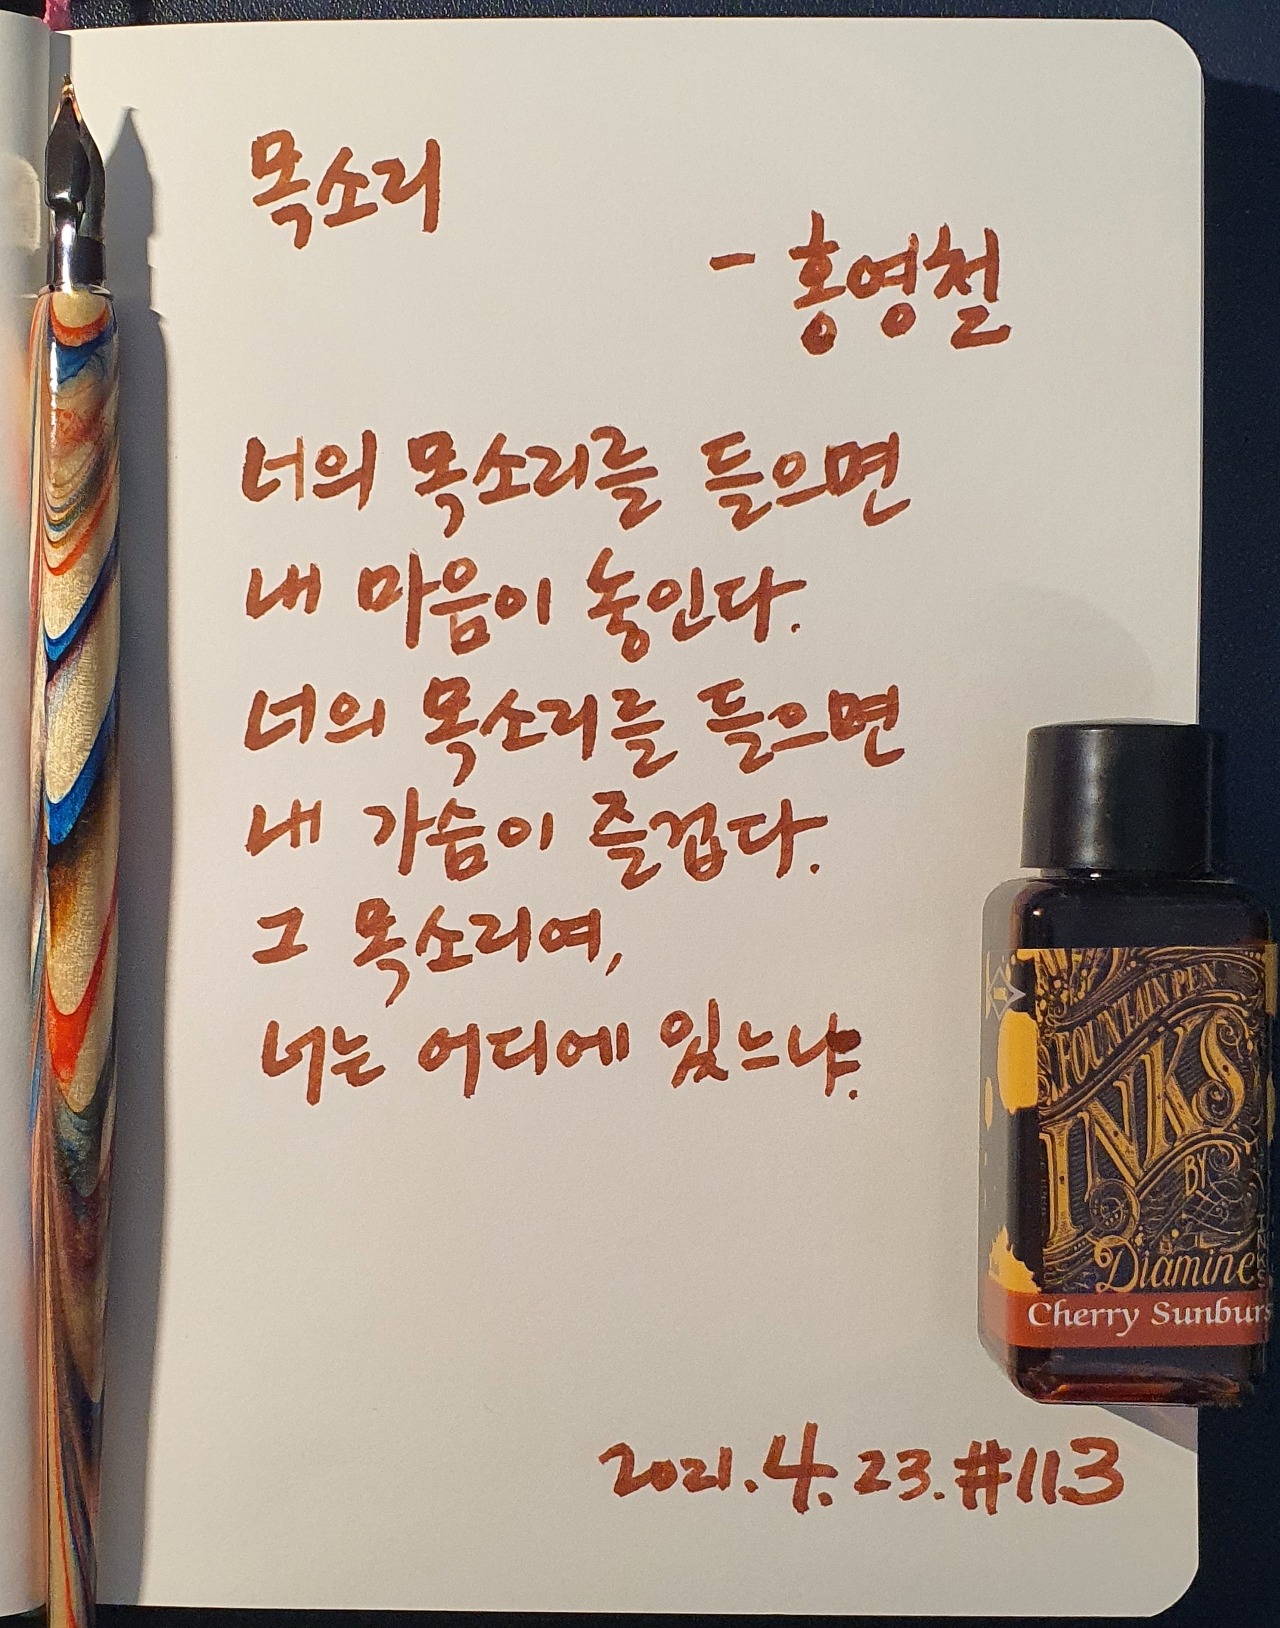 목소리
- 홍영철
너의 목소리를 들으면
내 마음이 놓인다.
너의 목소리를 들으면
내 가슴이 즐겁다.
그 목소리여,
너는 어디에 있느냐.
FOUNTAIN PEN
INKS
BY
Diamine
Cherry Sunburs
2021.4.23.#113